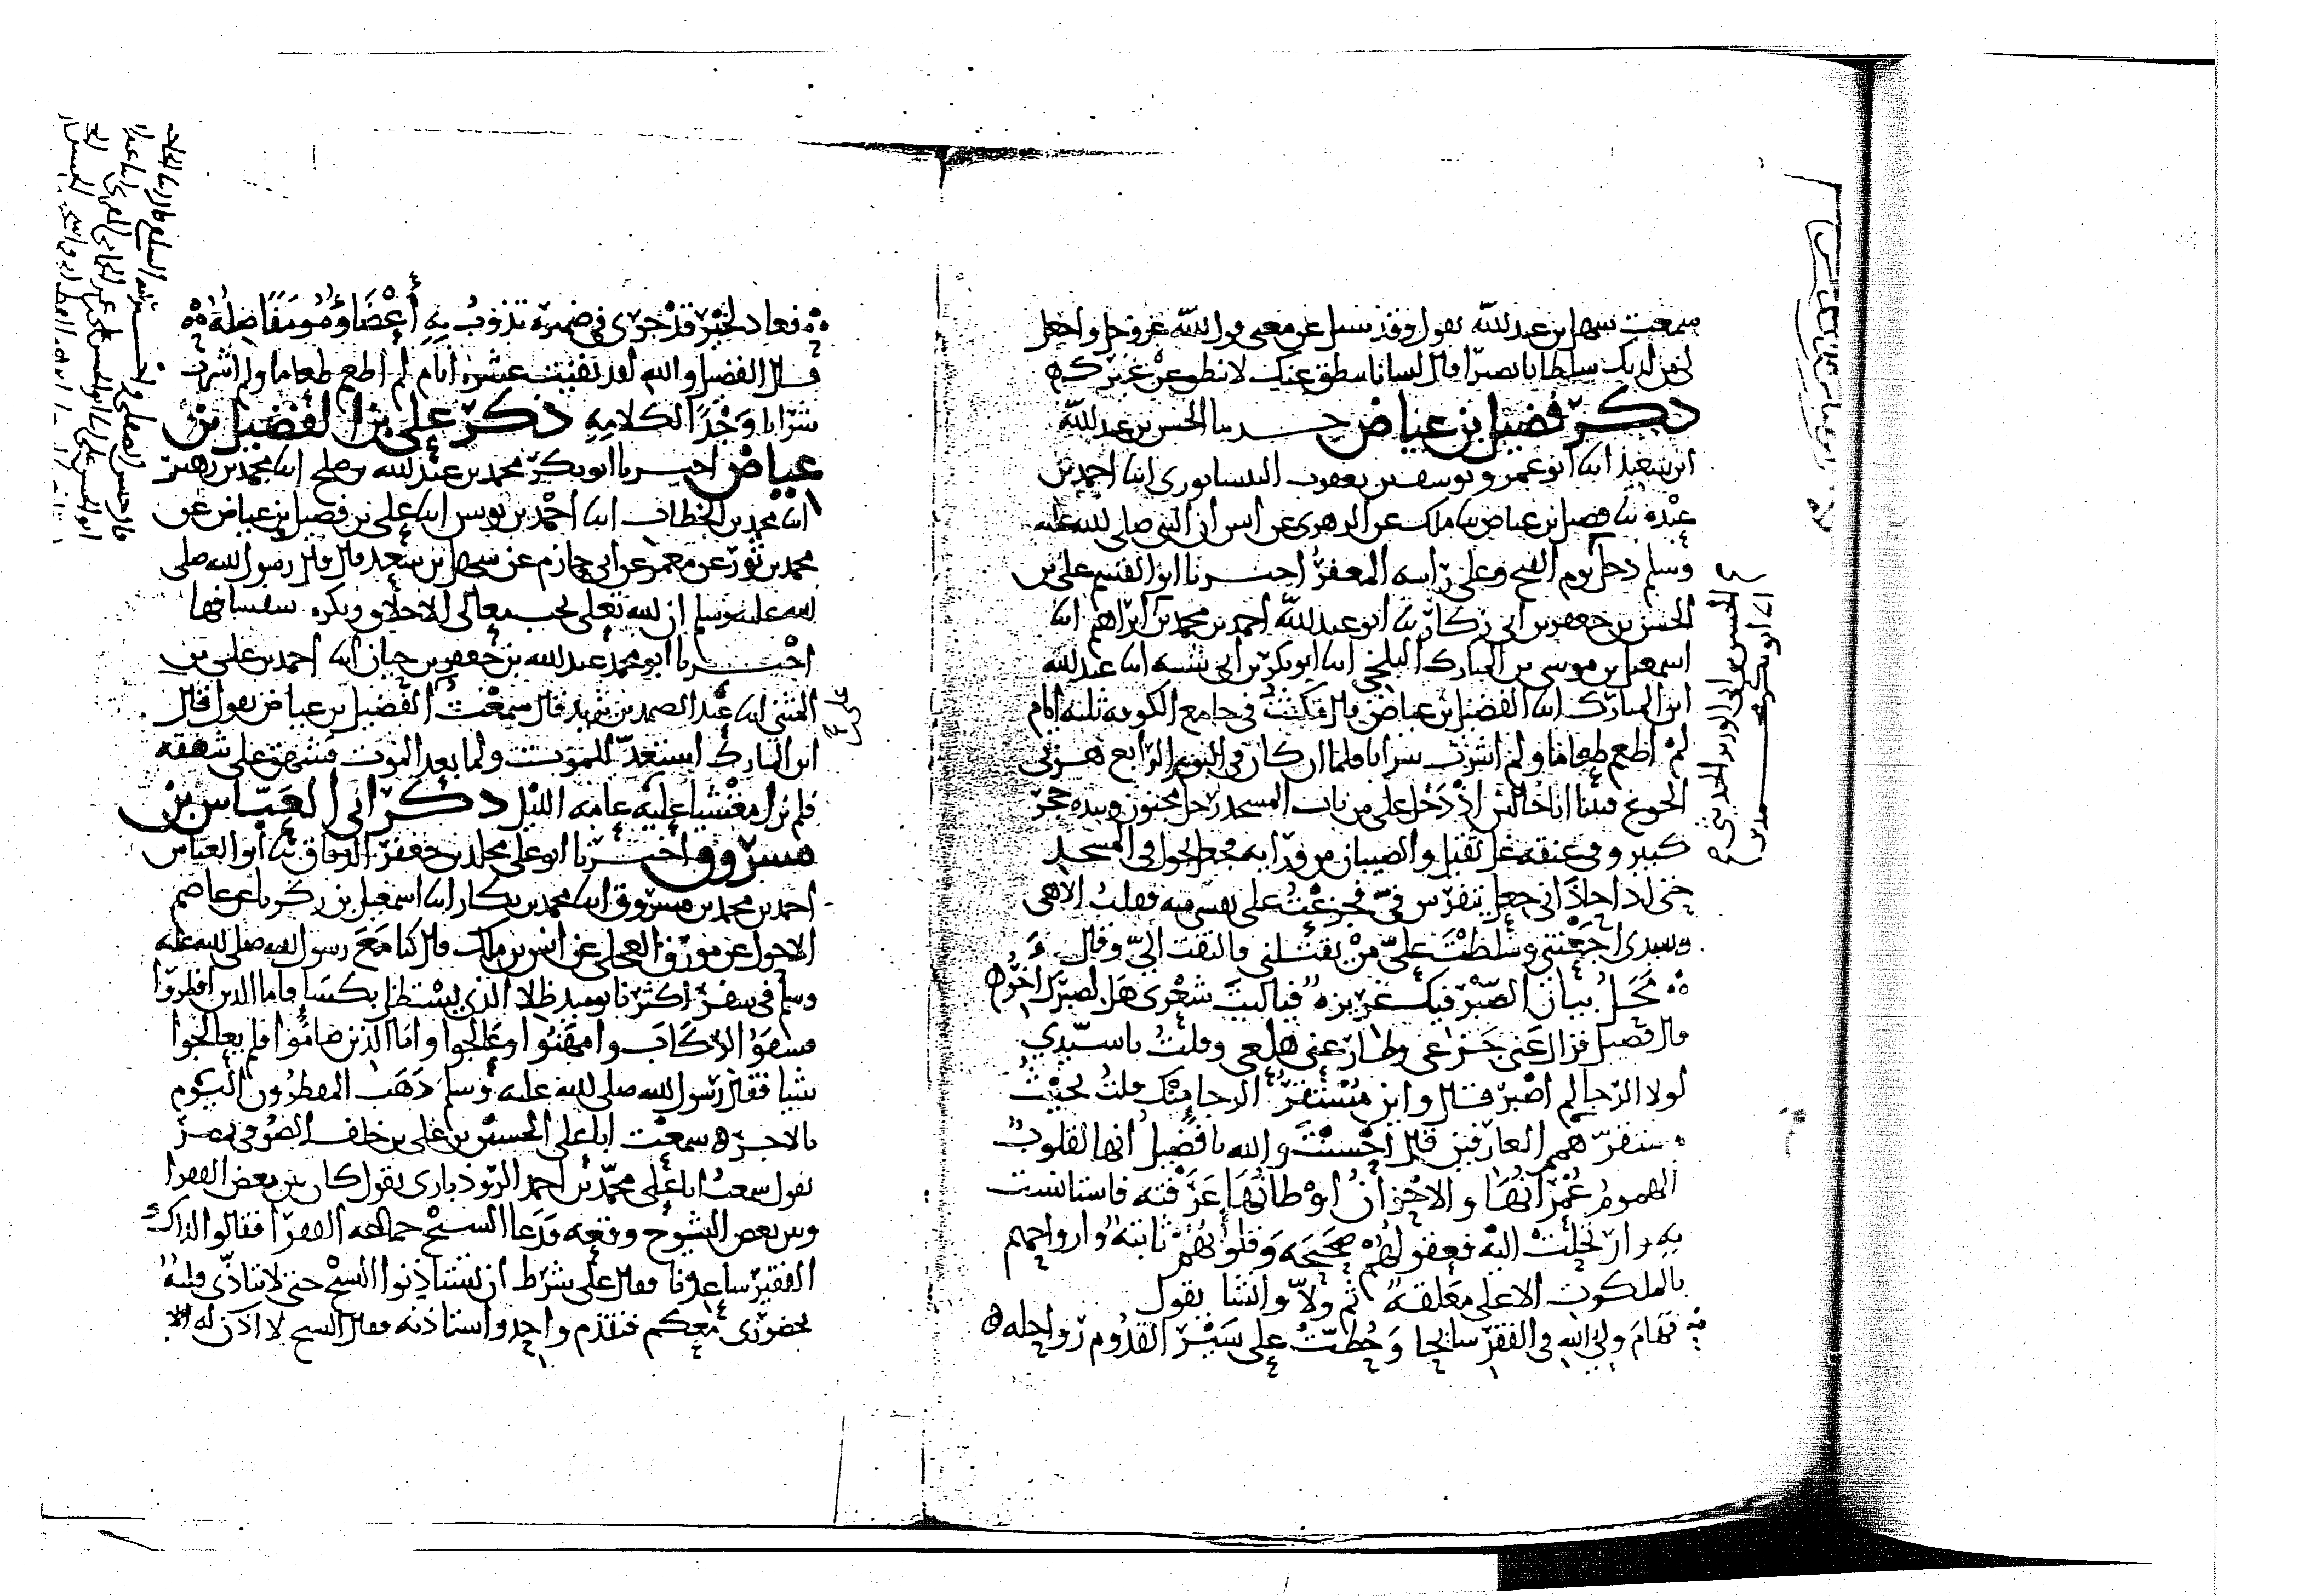 سمعت سهل بن عبد الله يقول وقد سئل عن معنى قول الله عز وجل واجعل
لي من لدنك سلطانا نصيرا قال لسانا ينطق عنك لا ينطق عن غيرك
ذكر فضيل بن عياض حدثنا الحسن بن عبد الله
ابن سعيد انبا ابو عمرو يوسف بن يعقوب النيسابوري انبا احمد بن
عبدة ثنا فضيل بن عياض ثنا ملك عن الزهري عن انس ان النبي صلى الله عليه
وسلم دخل يوم الفتح وعلى راسه المغفر اخبرنا ابو القسم علي بن
الحسن بن جعفر بن ابي زكار ثنا ابو عبد الله احمد بن محمد بن ابراهيم انبا
اسمعيل بن موسى بن المبارك البلخي انبا ابو بكر بن ابي شيبه انبا عبد الله
ابن المبارك انبا الفضيل بن عياض قال مكثت في جامع الكوفه ثلثه ايام
لم اطعم طعاما ولم اشرب شرابا فلما ان كان في اليوم الرابع هزني
الجوع فبينا انا جالس اذ دخل علي من باب المسجد رجل مجنون وبيده حجر
كبير وفي عنقه غل ثقيل والصبيان من ورايه فجعل يجول في المسجد
حتى اذا حاذاني جعل يتفرس في فجزعت على نفسي منه فقلت الاهي
وسيدي اجعتني وسلطت علي من يقتلني فالتفت الي وقال
محل بيان الصبر فيك غريزه فيا ليت شعري هل لصبرك اخر
قال فضيل فزال عني جزعي وطار عني هلعي وقلت يا سيدي
لولا الرجا لم اصبر قال واين مستقر الرجا منك قلت بحيث
مستقر همم العارفين قال احسنت والله يا فضيل انها لقلوب
الهموم عمرانها والاحزان اوطانها عرفته فاستانست
به وارتحلت اليه فعقولهم صحيحه وقلوبهم ثابته وارواحهم
بالملكوت الاعلى معلقه ثم ولا وانشا يقول
فهام ولي الله في الفقر سايحا وحطت على سير القدوم رواحله
فعاد لخير قد جرى في ضميره تذوب به اعضاؤه ومفاصله
قال الفضيل والله لقد بقيت عشره ايام لم اطعم طعاما ولم اشرب
شرابا وجدا لكلامه ذكر علي بن الفضيل بن
عياض اخبرنا ابو بكر محمد بن عبد الله بن صلح انبا محمد بن زهير
انبا محمد بن الخطاب انبا احمد بن يونس انبا علي بن فضيل بن عياض عن
محمد بن ثور عن معمر عن ابي حازم عن سهل بن سعد قال قال رسول الله صلى
الله عليه وسلم ان الله تعلى يحب معالي الاخلاق ويكره سفسافها
اخبرنا ابو محمد عبد الله بن جعفر بن حيان انبا احمد بن علي بن
المثنى انبا عبد الصمد بن يزيد قال سمعت الفضيل بن عياض يقول قال
ابن المبارك استعد للموت ولما بعد الموت فشهق علي شهقه
فلم يزل مغشيا عليه عامه الليل ذكر ابي العباس بن
مسروق اخبرنا ابو علي مخلد بن جعفر الدقاق ثنا ابو العباس
احمد بن محمد بن مسروق انبا محمد بن بكار انبا اسمعيل بن زكريا عن عاصم
الاحول عن مورق العجلي عن انس بن ملك قال كنا مع رسول الله صلى الله عليه
وسلم في سفر اكثرنا يوميذ ظلا الذي يستظل بكسا فاما الذين افطروا
فسقوا الركاب وامتهنوا وعالجوا واما الذين صاموا فلم يعالجوا
شيا فقال رسول الله صلى الله عليه وسلم ذهب المفطرون اليوم
بالاجر سمعت ابا علي الحسين بن علي بن خلف الصوفي بمصر
يقول سمعت ابا علي محمد بن احمد الروذباري يقول كان بين بعض الفقرا
وبين بعض الشيوخ وقعه فدعا الشيخ جماعه الفقرا فقالوا لذاك
الفقير ساعدنا فقال على شرط ان تستاذنوا الشيخ حتى لا يتاذى قلبه
بحضوري معكم فتقدم واحد واستاذنه فقال الشيخ لا اذن له الا